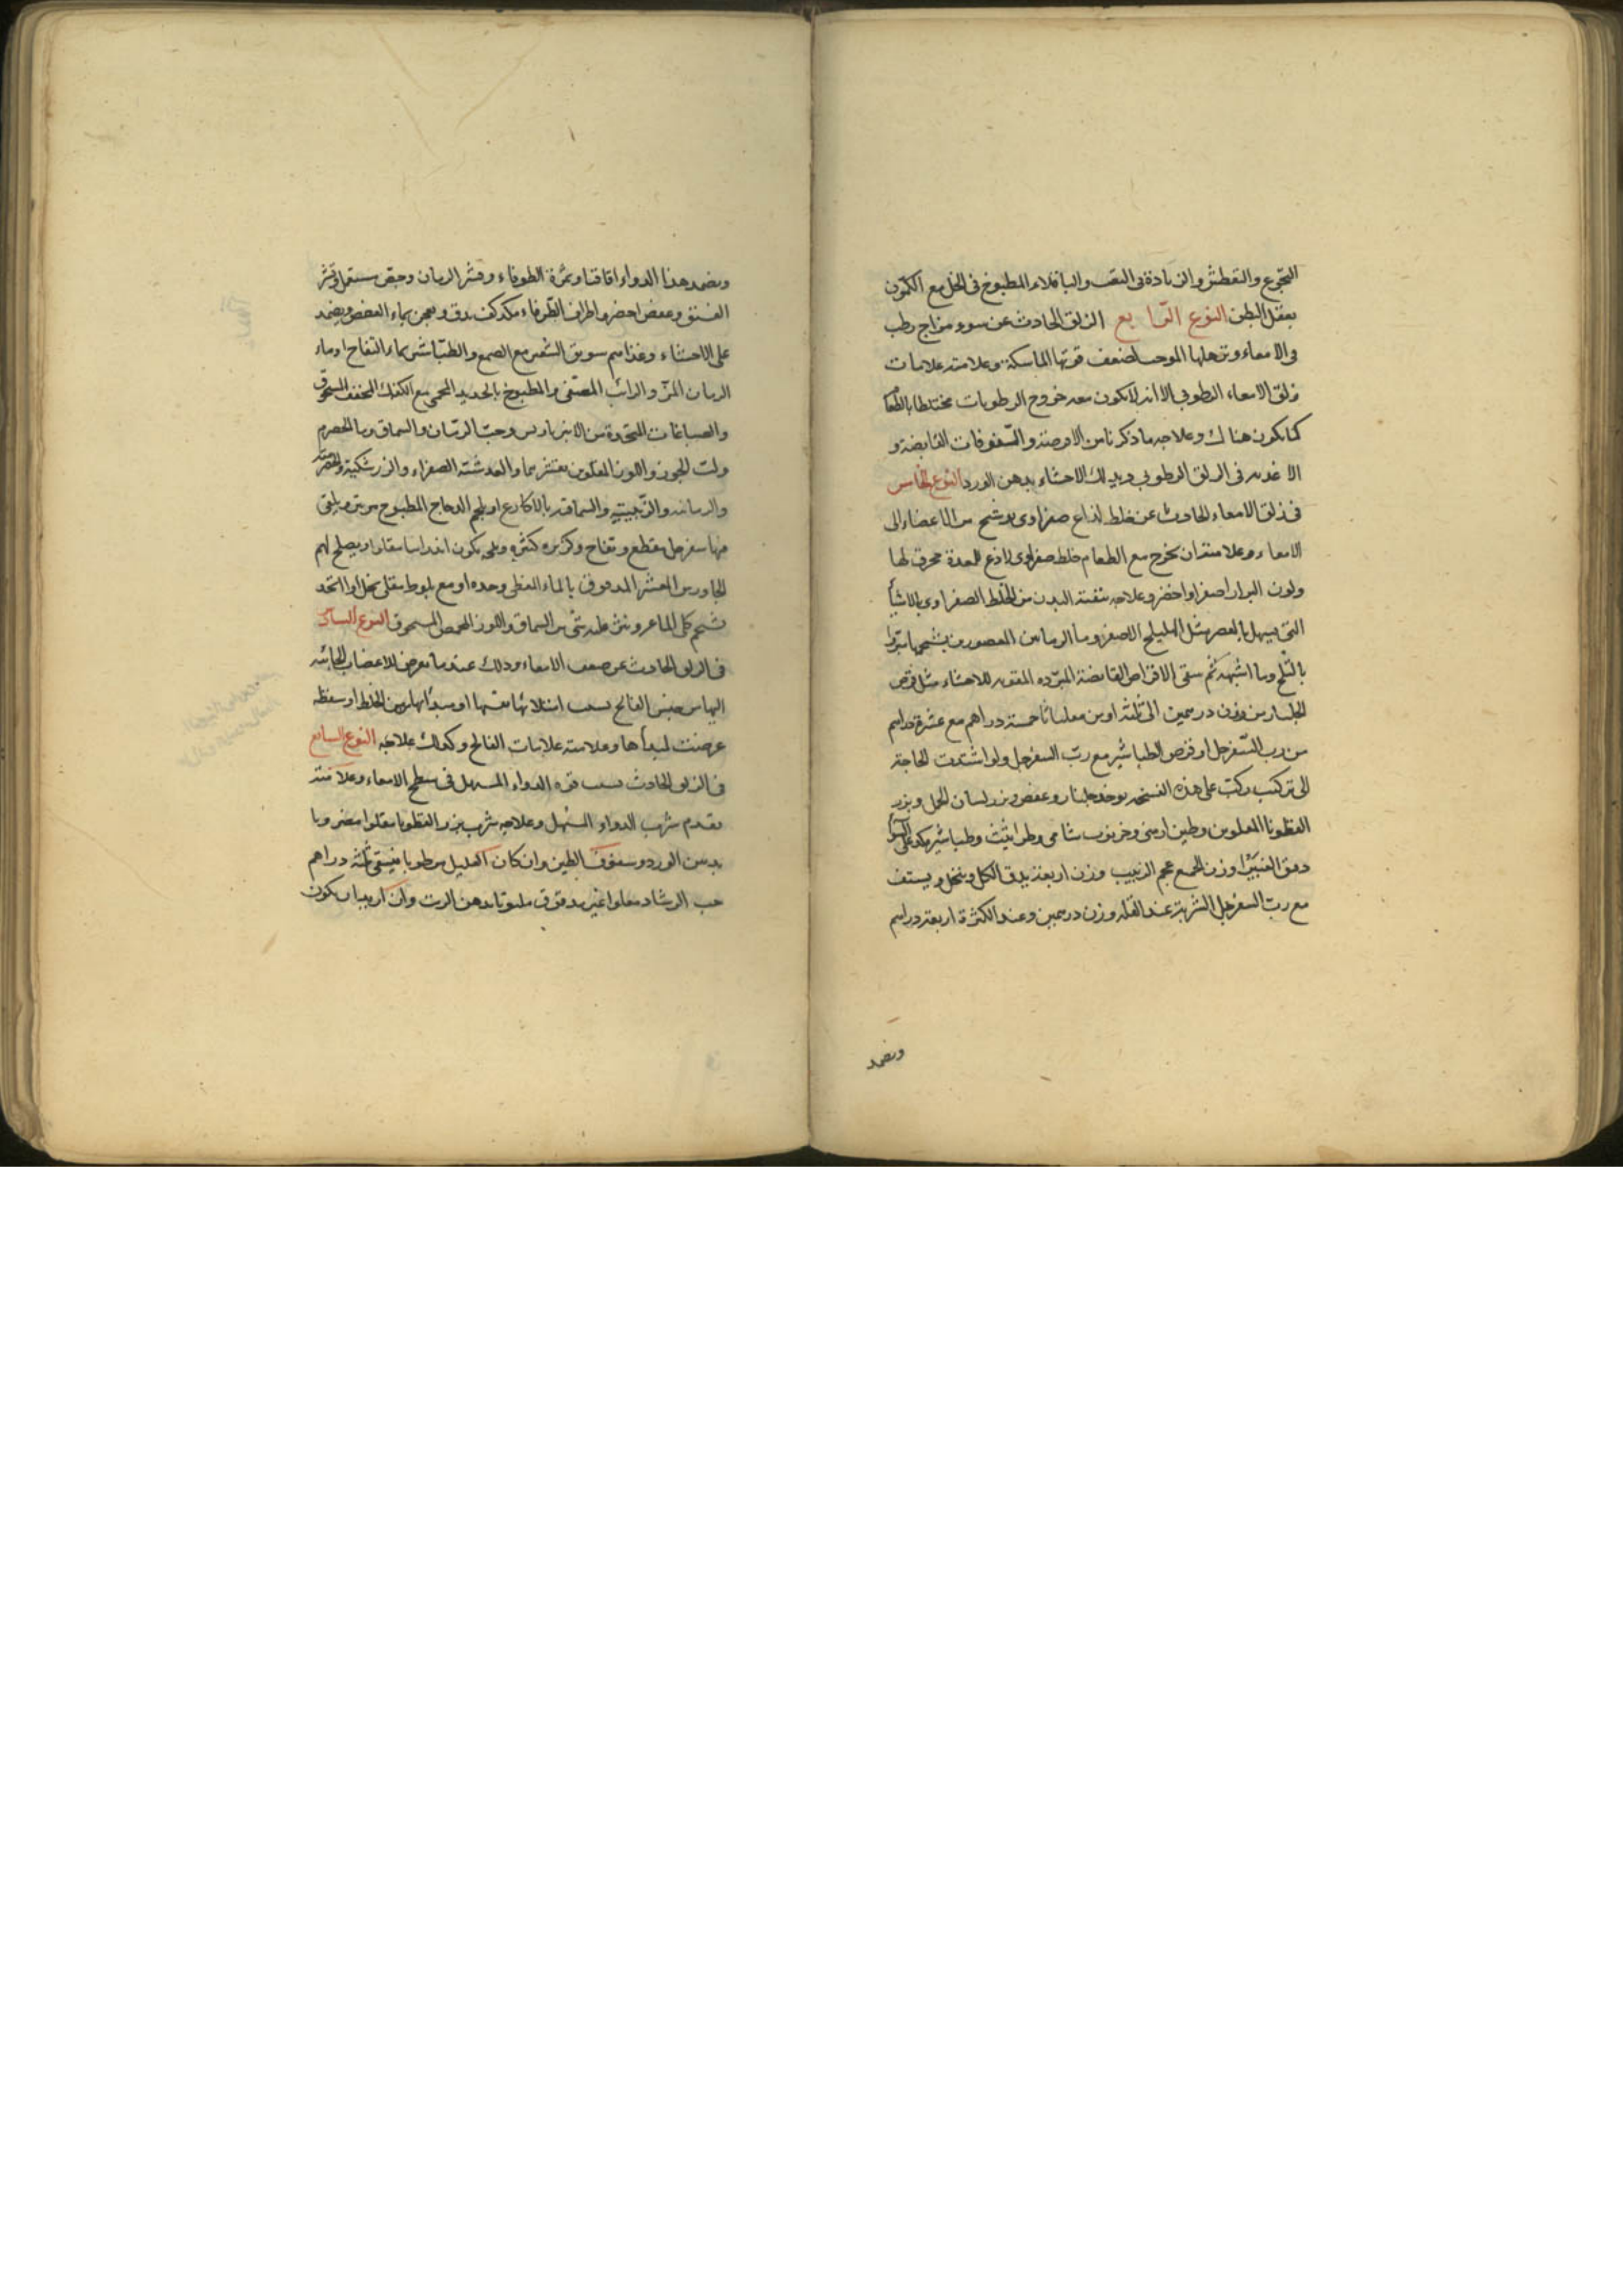 التجوع والتعطش والزيادة فى التعب والباقلاء المطبوخ فى الخل مع الكمون
يعقل البطن النوع الرابع الزلق الحادث عن سوء مزاج رطب
فى الامعاء وترهلها الموجب لضعف قوتها الماسكة وعلامته علامات
زلق الامعاء الرطوبي الا انه لا يكون معه خروج الرطوبات مختلطا بالطعام
كما يكون هناك وعلاجه ما ذكرنا من الاقرصة والسفوفات القابضة و
الاغذية فى الزلق الرطوبي ويدلك الاحشاء بدهن الورد النوع الخامس
فى زلق الامعاء الحادث عن خلط لذاع صفراوى يترشح من الاعضاء الى
الامعاء وعلامته ان يخرج مع الطعام خلط صفراوى لاذع للمعدة محرق لها
ولون البراز اصفر او اخضر وعلاجه تنقية البدن من الخلط الصفراوى بالاشياء
التى تسهل بالعصر مثل الهليلج الاصفر وماء الرمانين المعصورين بشحمها مبردا
بالثلج وما اشبهه ثم سقى الاقراص القابضة المبردة المقوية للاحشاء مثل قرص
الجلنار من وزن درهمين الى ثلثة او من خمسة دراهم مع عشرة دراهم
من رب السفرجل او قرص الطباشير مع رب السفرجل ولو اشتدت الحاجة
الى تركيب ركب على هذه النسخة يوخذ جلنار وعفص وبزر لسان الحمل وبزر
القطونا المقلوين وطين ارمنى وخرنوب شامى وطراثيث وطباشير
دقق الغبيرا وزن الجميع عجم الزبيب وزن اربعة يدق الكل وينخل ويستف
مع رب السفرجل الشربة عند القلة وزن درهمين وعند الكثرة اربعة دراهم
ويضمد
ويضمد هذا الدواء اقاقيا وثمرة الطرفاء وقشر الرمان وجفت
الفستق وعفص اخضر واطراف الطرفاء يدق ويعجن بماء العفص ويضمد
على الاحشاء وغذاهم سويق الشعير مع الصمغ والطباشير بماء التفاح او ماء
الرمان المز والرائب المصفى والمطبوخ بالحديد المحمى مع الكعك المجفف المسحوق
والصباغات المتخذة من الانبرباريس وحب الرمان والسماق وماء الحصرم
ولب الجوز واللوز المقلوين بقشرهما والعدسية الصفراء والزرشكية والحصرمية
والرمانية والزبيبية والسماقية بالاكارع او بلحم الدجاج المطبوخ مرتين ويلقى
فيها سفرجل مقطع وتفاح وكزبرة كثيرة ويصلح لهم
الجاورس المقشر المدقوق بالماء القطى وحده او مع بلوط مقلى بخل او المتخذ
بشحم كلى الماعز وينثر عليه شئ من السماق واللوز المحمص المسحوق النوع السادس
فى الزلق الحادث عن ضعف الامعاء وذلك عندما يعرض للاعصاب الجائية
اليها من جنس الفالج بسبب امتلائها نفسها او مبدأ لها من الخلط او سقطة
عرضت لمبدأها وعلامته علامات الفالج وكذلك علاجه النوع السابع
فى الزلق الحادث بسبب قوة الدواء المسهل فى سطح الامعاء وعلامته
تقدم شرب الدواء المسهل وعلاجه شرب بزر القطونا مقلوا مضروبا
بدهن الورد وسفوف الطين وان كان العليل مرطوبا فيسقى ثلثة دراهم
حب الرشاد مقلوا غير مدقوق ملتوتا بدهن الزيت وان اريد ان يكون